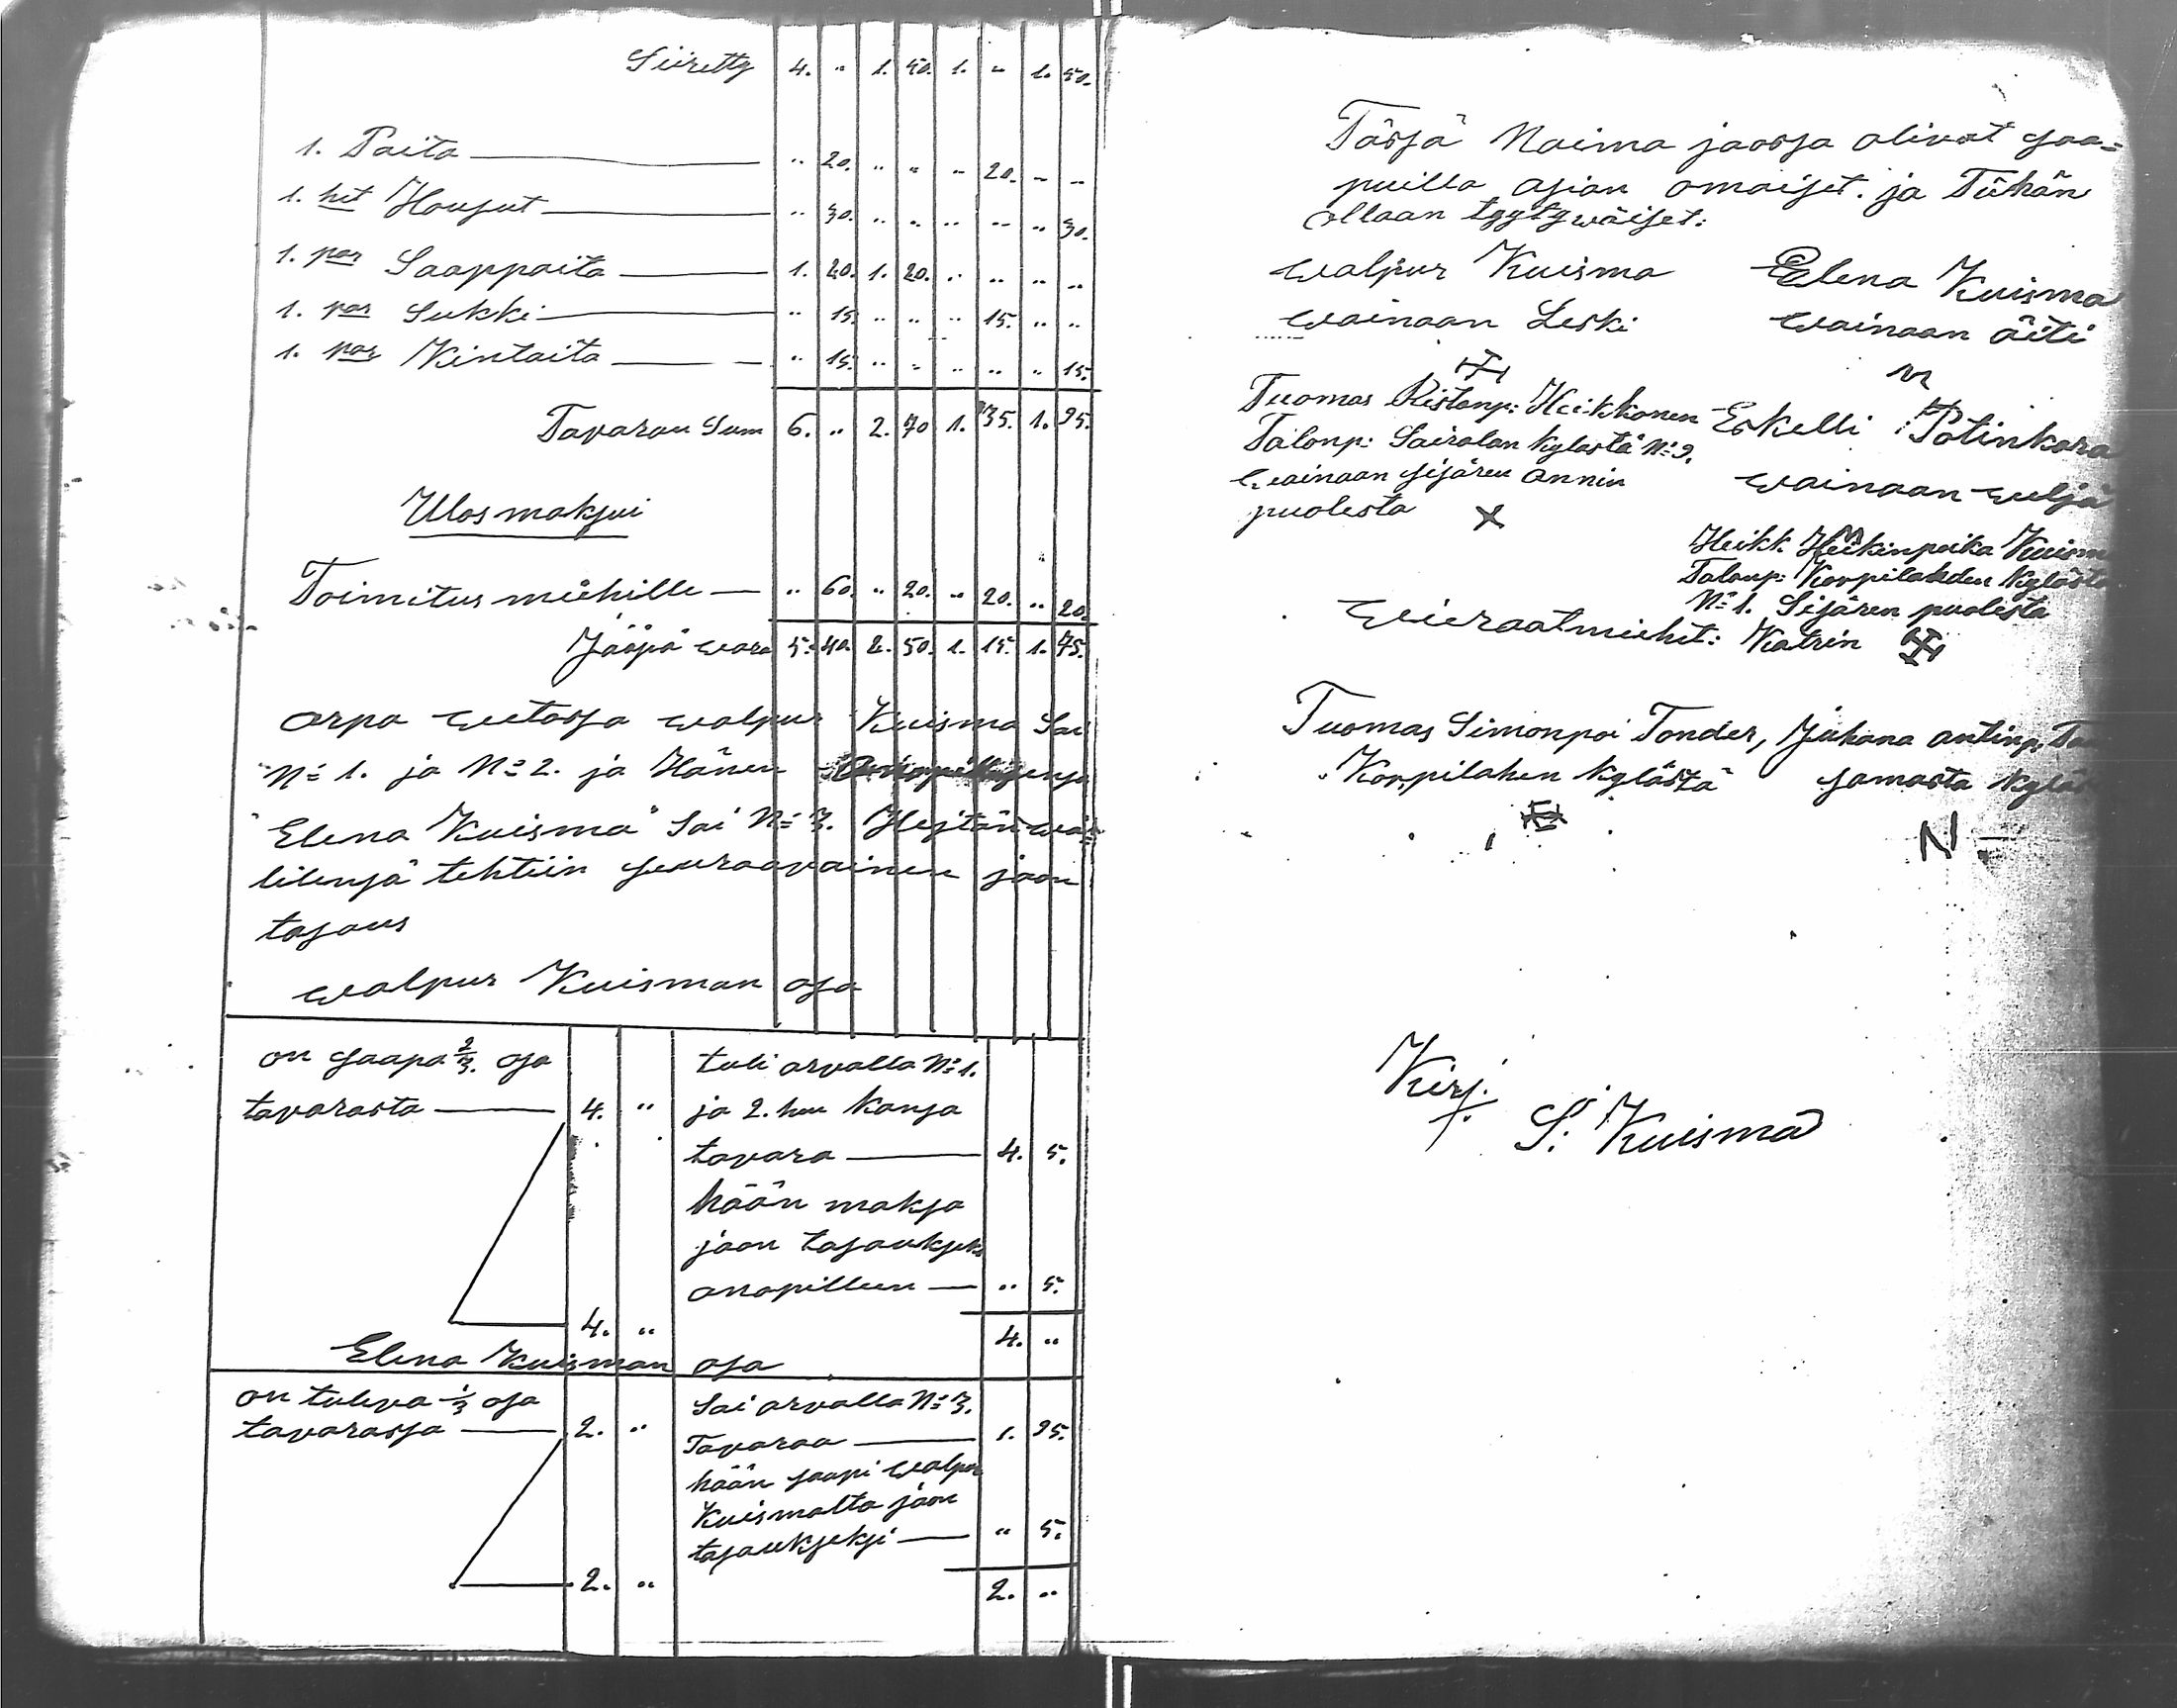 Siiretty 4. " 1. 50. 1. " 1. 50.
1. Paita — " 20. " " " 20. " "
1. het Housut — " 30. " " " " " 30.
1. par Saappaita — 1. 20. 1. 20. " " " "
1. par Sukki — " 15. " " " 15. " "
1. par Kintaita — " 15. " " " " " 15.
Tavaran Sum 6. " 2. 70 1. 35. 1. 95.
Ulosmaksui
Toimitus miehille — " 60. " 20. " 20. " 20.
Jääpä wara 5. 40. 2. 50. 1. 15. 1. 75.
arpa wetossa walpur Kuisma Sai
N:o 1. ja N:o 2. ja Hänen
Elena Kuisma Sai N:o 3. Heitän wä=
lilensä tehtiin seuraavainen jaon
tasaus
walpur Kuisman osa
on saapa 2/3. osa
tavarasta — 4. "
4. "
tuli arvalla N:o 1.
ja 2. hen Kansa
tavara — 4. 5.
hään maksa
jaon tasaukseks
anopilleen — " 5.
4. "
Elena Kuisman osa
on tuleva 1/3 osa
tavarassa — 2. "
2. "
Sai arvalla N:o 3.
Tavaraa — 1. 95.
hään saapi walpur
Kuismalta jaon
tasaukseksi — " 5.
2. "
Tässä Naima jaossa olivat saa=
puilla asian omaiset. ja Tühän
ollaan tyytywäiset:
walpur Kuisma
wainaan Leski
Elena Kuisma
wainaan äiti
Tuomas Ristonp: Heikkonen
Talonp: Sairalan kylästä N:o 9.
wainaan sisären annin
puolesta
Eskelli Potinkara
wainaan weljä
Heikk. Heikinpoika Kuisma
Talonp: Korpilahden Kylästä
N:o 1. Sisären puolesta
Katrin
wieraatmiehet:
Tuomas Simonpoi Tonder, Juhana antinp.
Korpilahen kylästä samasta kyläs
N
Kirj.
S: Kuisma